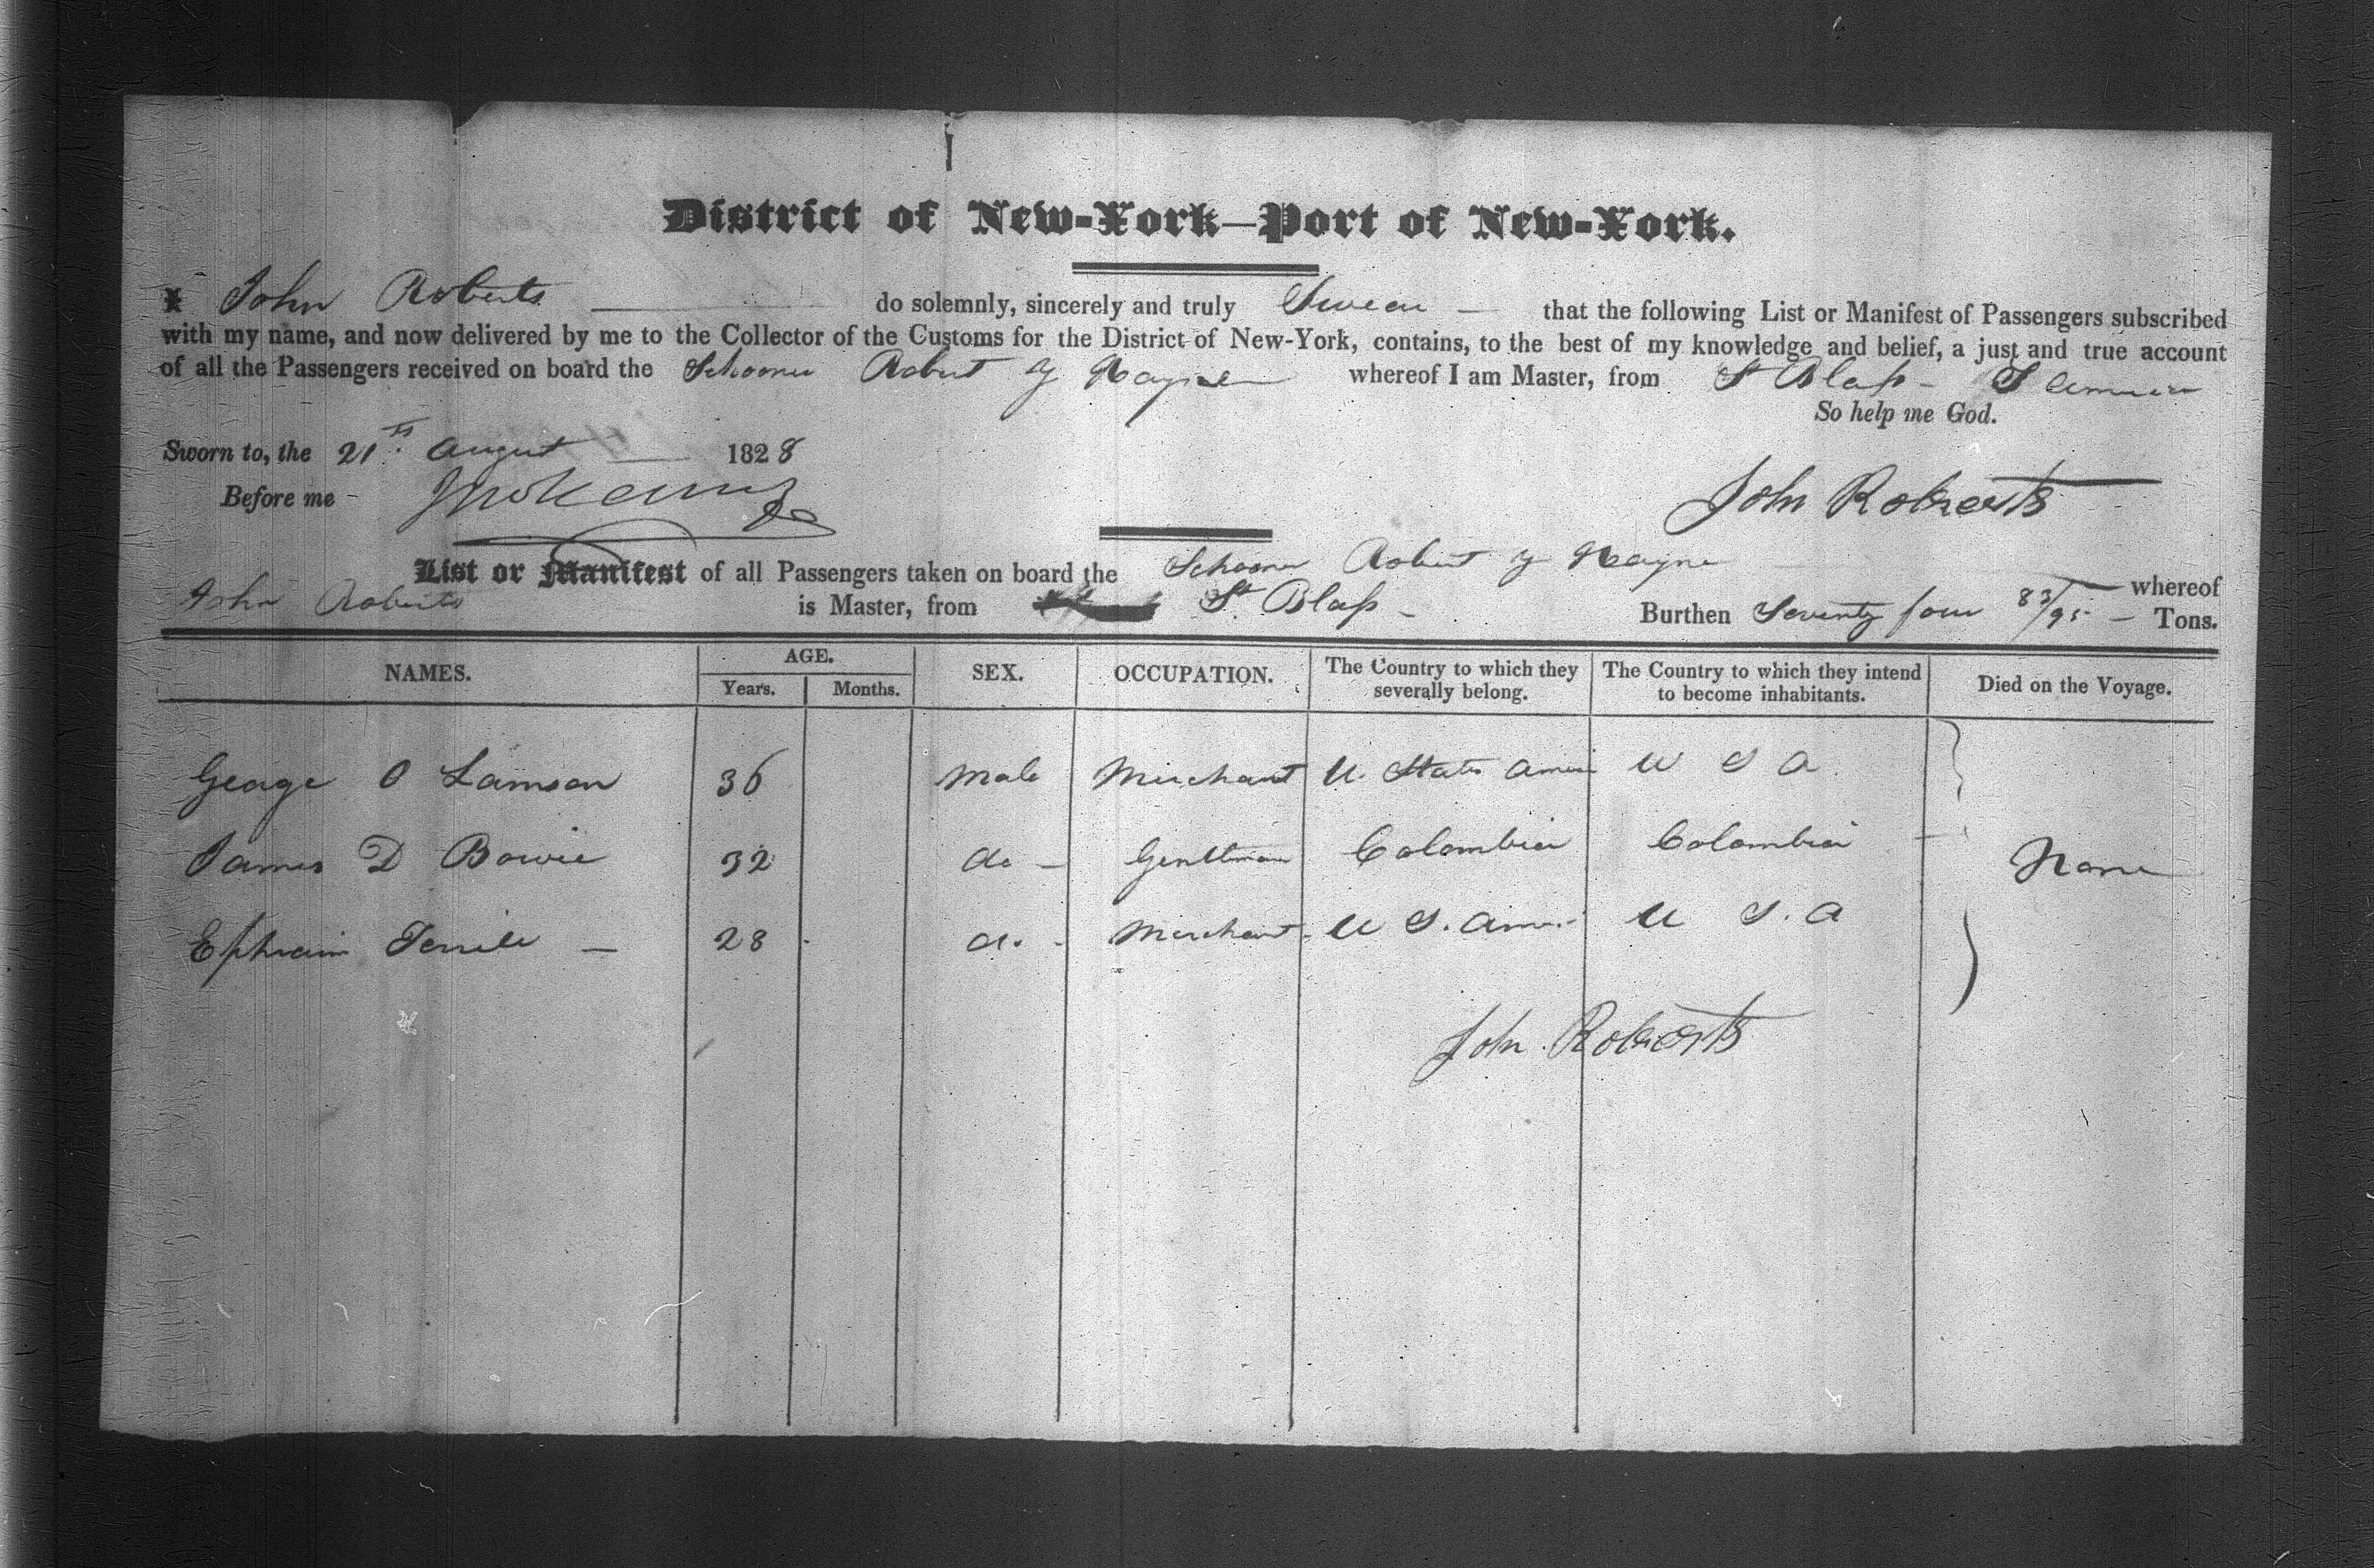 District of New-York—Port of New-York.
I John Roberts do solemnly, sincerely and truly Swear — that the following List or Manifest of Passengers subscribed
with my name, and now delivered by me to the Collector of the Customs for the District of New-York, contains, to the best of my knowledge and belief, a just and true account
of all the Passengers received on board the Schooner Robert Y Hayne whereof I am Master, from St Blass - S
So help me God.
Sworn to, the 21st. August 1828
Before me -
John Roberts
List or Manifest of all Passengers taken on board the Schooner Robert Y Hayne whereof
John Roberts is Master, from St Blass - Burthen Seventy four 83/95 - Tons.
NAMES. AGE. SEX. OCCUPATION. The Country to which they severally belong. The Country to which they intend to become inhabitants. Died on the Voyage.
Years. Months.
George O Lamson 36 Male Merchant U. States Amer U S A
James D Bowie 32 do - Gentleman Colombia Colombia None
Ephraim 28 do - Merchant U S. Amer. U S. A
John Roberts